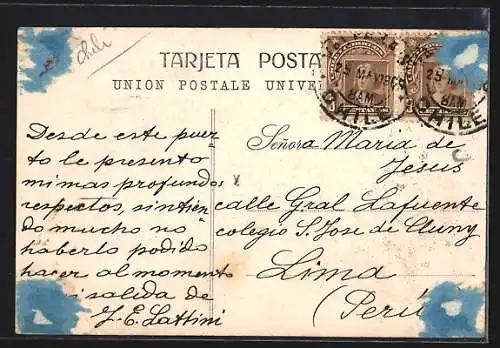 Chili
TARJETA POSTA
UNION POSTALE UNIVE
25 MAY 08
8AM
CHILE
25
8AM
CHILE
Desde este puer
to le presento
mi mas profundos
respectos, sintien
do mucho no
haberlo podido
hacer al momento
salida de
J. E. Lattini
Señora Maria de
Jesus
calle Gral Lafuente
colegio S. Jose de Cluny
Lima
(Perú